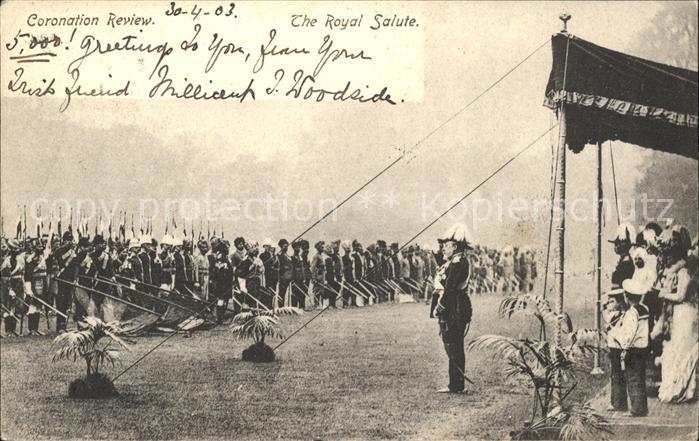 Coronation Review. 30-4-03. The Royal Salute.
5,000! Greetings to You, from Your
Irish friend Millicent J. Woodside.
copy protection ** Kopierschutz